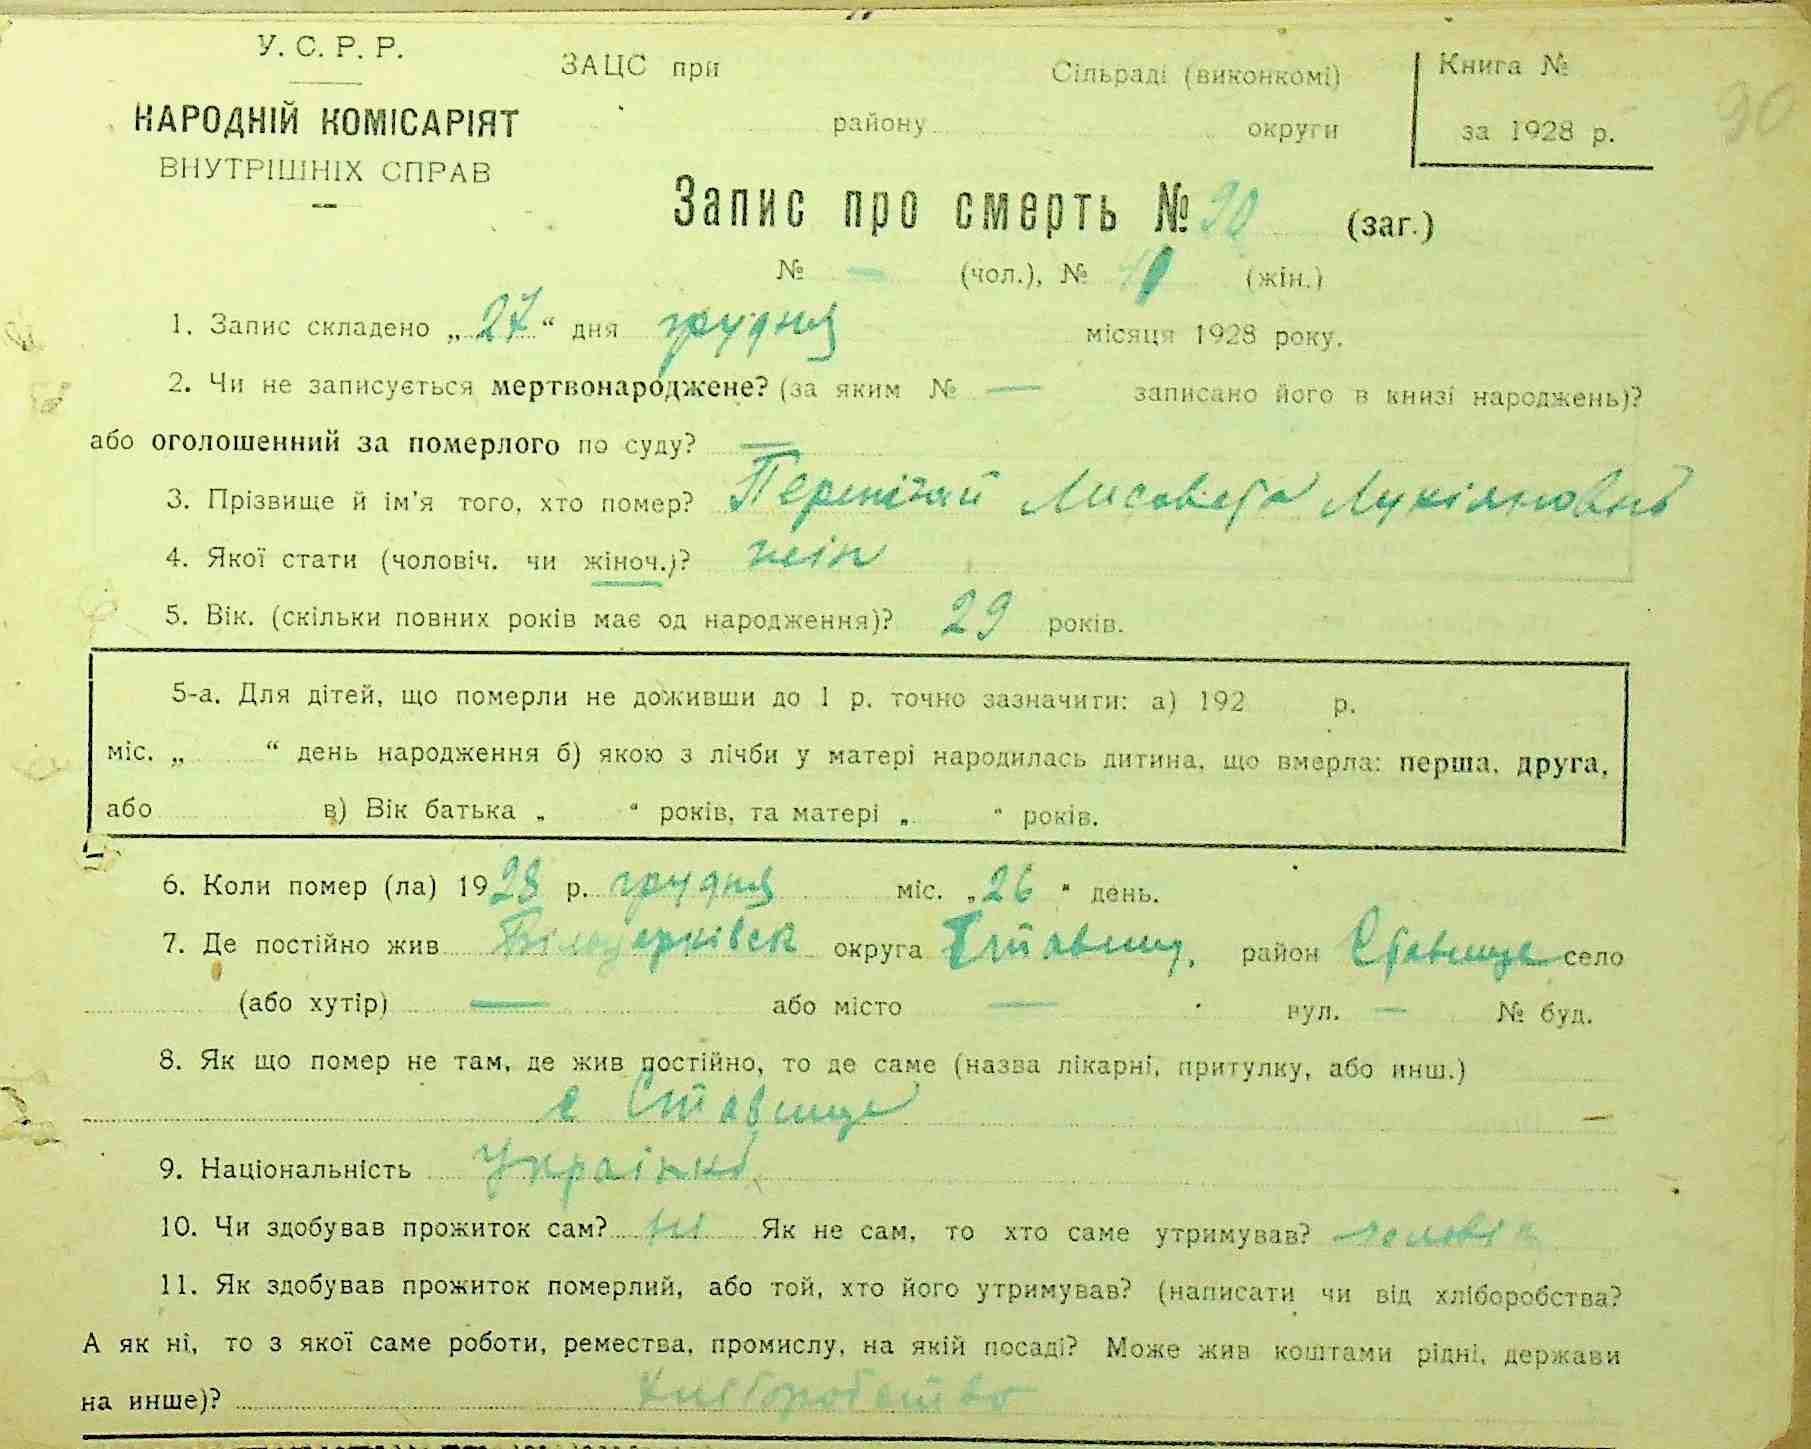 У. С. Р. Р.
НАРОДНІЙ КОМІСАРІЯТ
ВНУТРІШНІХ СПРАВ
ЗАЦС при Сільраді (виконкомі)
району округи
Книга №
за 1928 р.
90
Запис про смерть № 90 (заг.)
№ — (чол.), № (жін.)
1. Запис складено „27“ дня грудня місяця 1928 року.
2. Чи не записується мертвонароджене? (за яким № — записано його в книзі народжень)?
або оголошенний за померлого по суду? —
3. Прізвище й ім'я того, хто помер? Лисавета Лукіяновна
4. Якої стати (чоловіч. чи жіноч.)? жін
5. Вік. (скільки повних років має од народження)? 29 років.
5-а. Для дітей, що померли не доживши до 1 р. точно зазначити: а) 192 р.
міс. „ “ день народження б) якою з лічби у матері народилась дитина, що вмерла: перша, друга,
або в) Вік батька „ “ років, та матері „ “ років.
6. Коли помер (ла) 1928 р. грудня міс. „26“ день.
7. Де постійно жив Білоцерківськ округа Ставищ. район Ставище село
(або хутір) — або місто — вул. — № буд.
8. Як що помер не там, де жив постійно, то де саме (назва лікарні, притулку, або инш.)
с Ставище —
9. Національність Українка
10. Чи здобував прожиток сам? ні Як не сам, то хто саме утримував? чоловік
11. Як здобував прожиток померлий, або той, хто його утримував? (написати чи від хліборобства?
А як ні, то з якої саме роботи, ремества, промислу, на якій посаді? Може жив коштами рідні, держави
на инше)? хліборобство